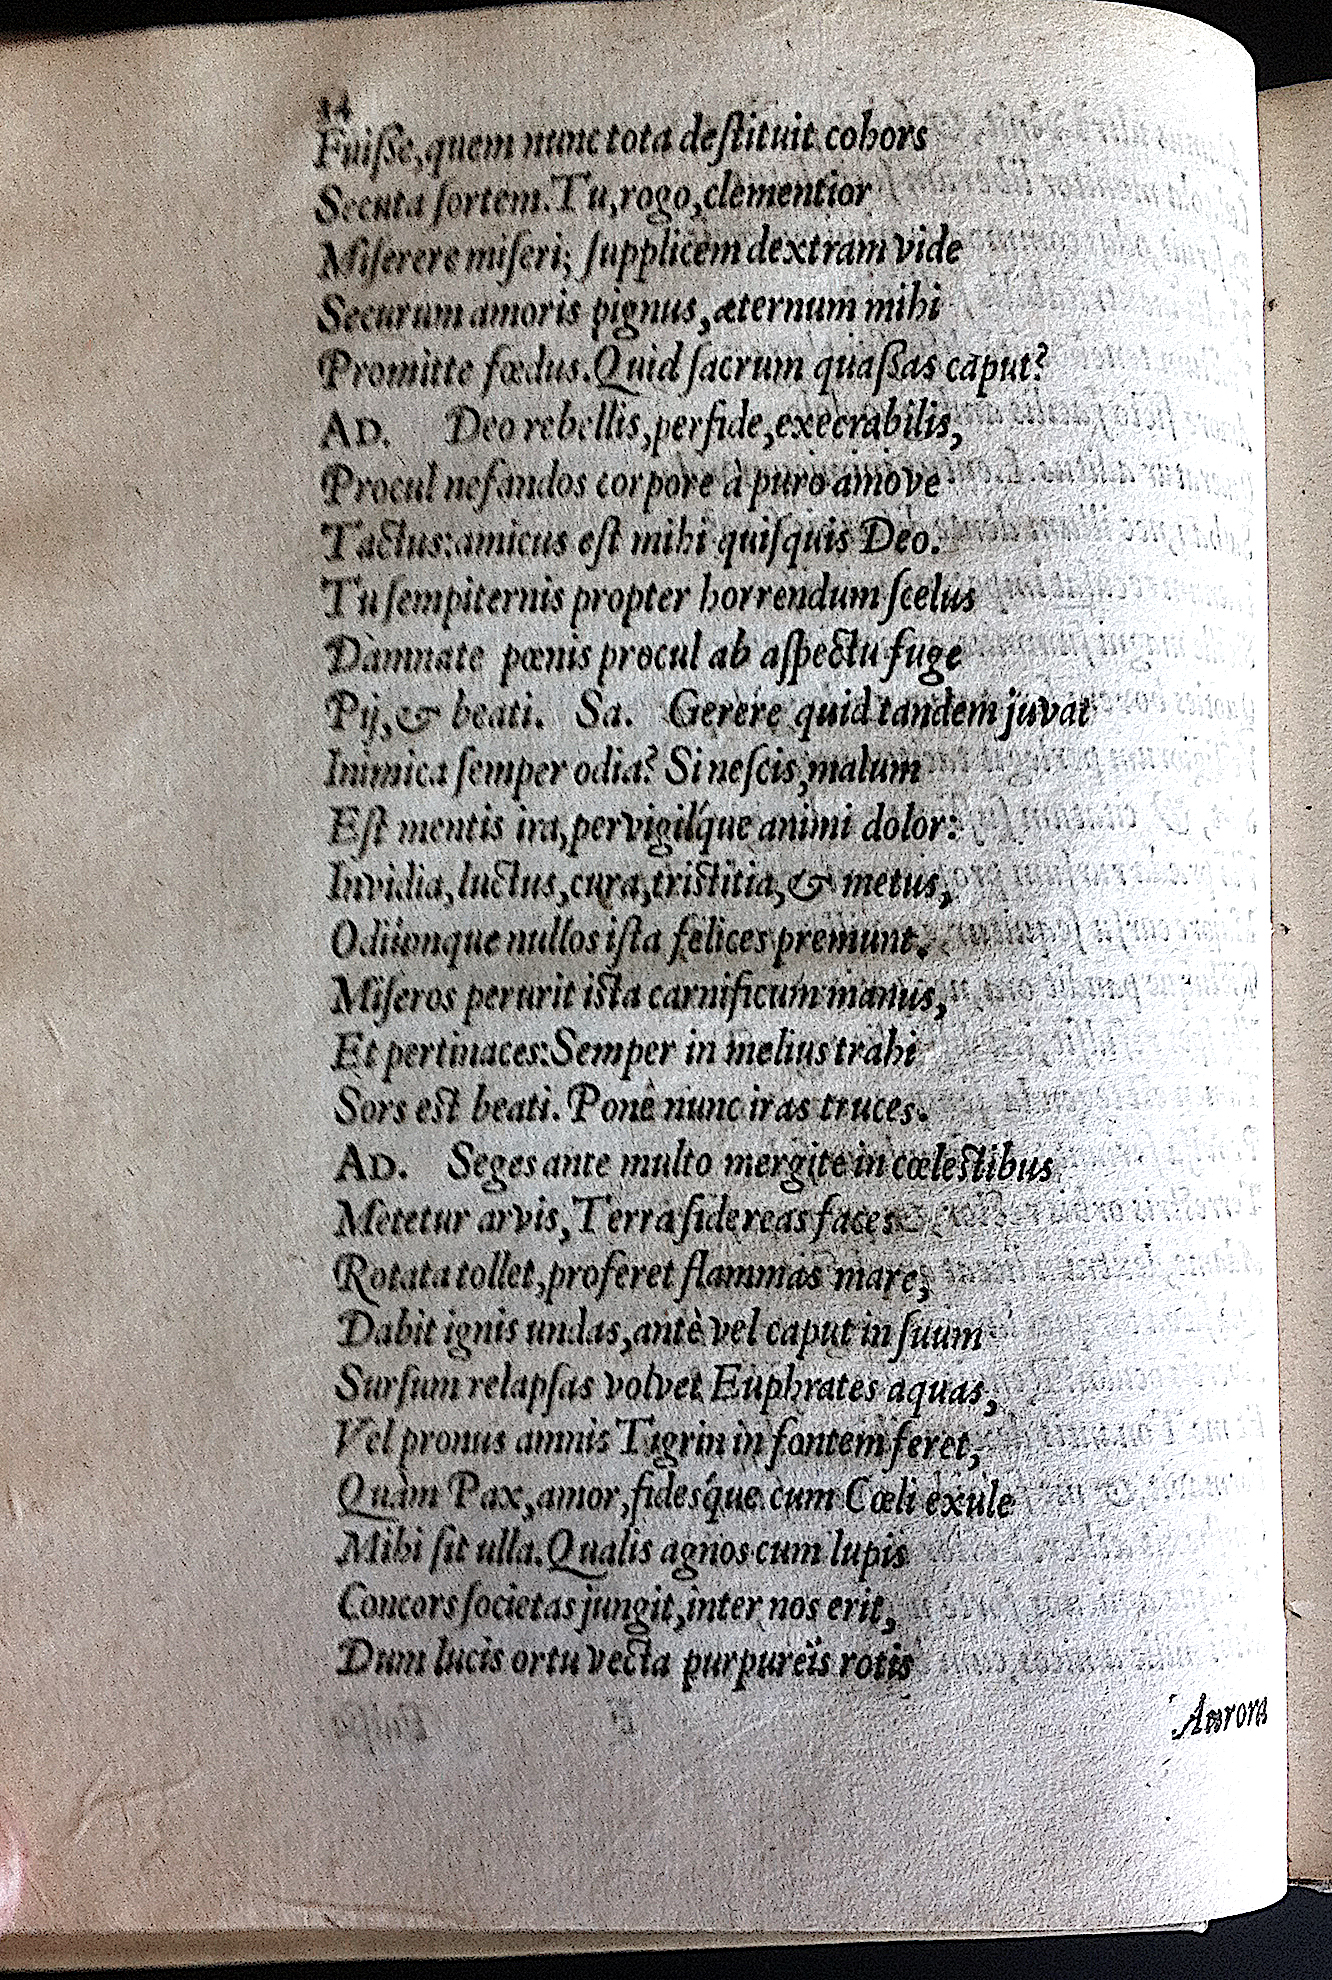 34
Fuiſſe, quem nunc tota deſtituit cohors
Secuta ſortem. Tu, rogo, clementior
Miſerere miſeri; ſupplicem dextram vide
Securum amoris pignus, æternum mihi
Promitte fœdus. Quid ſacrum quaſſas caput?
AD. Deo rebellis, perfide, execrabilis,
Procul nefandos corpore à puro amove
Tactus: amicus eſt mihi quiſquis Deo.
Tu ſempiternis propter horrendum ſcelus
Damnate pœnis procul ab aſpectu fuge
Pij, & beati. Sa. Gerere quid tandem juvat
Inimica ſemper odia? Si neſcis, malum
Eſt mentis ira, pervigilq́ue animi dolor:
Invidia, luctus, cura, triſtitia, & metus,
Odiúmque nullos iſta felices premunt.
Miſeros perurit iſta carnificum manus,
Et pertinaces: Semper in melius trahi
Sors eſt beati. Pone nunc iras truces.
AD. Seges ante multo mergite in cœleſtibus
Metetur arvis, Terra ſidereas faces
Rotata tollet, proferet flammas mare,
Dabit ignis undas, antè vel caput in ſuum
Surſum relapſas volvet Euphrates aquas,
Vel pronus amnis Tigrin in fontem feret,
Quàm Pax, amor, fidesq́ue cum Cœli exule
Mihi ſit ulla. Qualis agnos cum lupis
Concors ſocietas jungit, inter nos erit,
Dum lucis ortu vecta purpureis rotis
Aurora